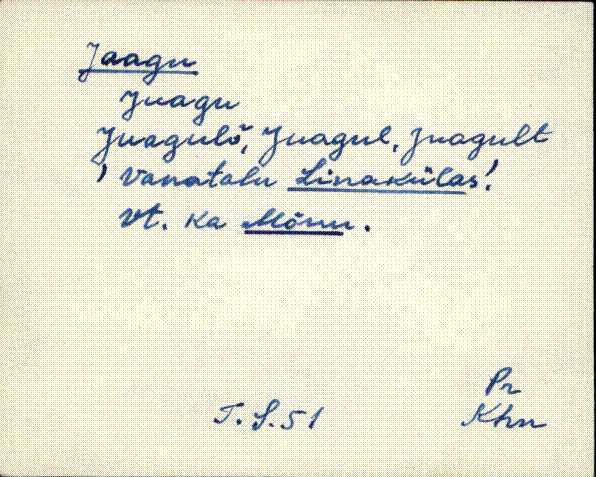 Jaagu
Juagu
Juagulõ, Juagul, Juagult
'Vanatalu Linakülas!
Vt. ka Mõnu.
Pr
T.S.51 Khn